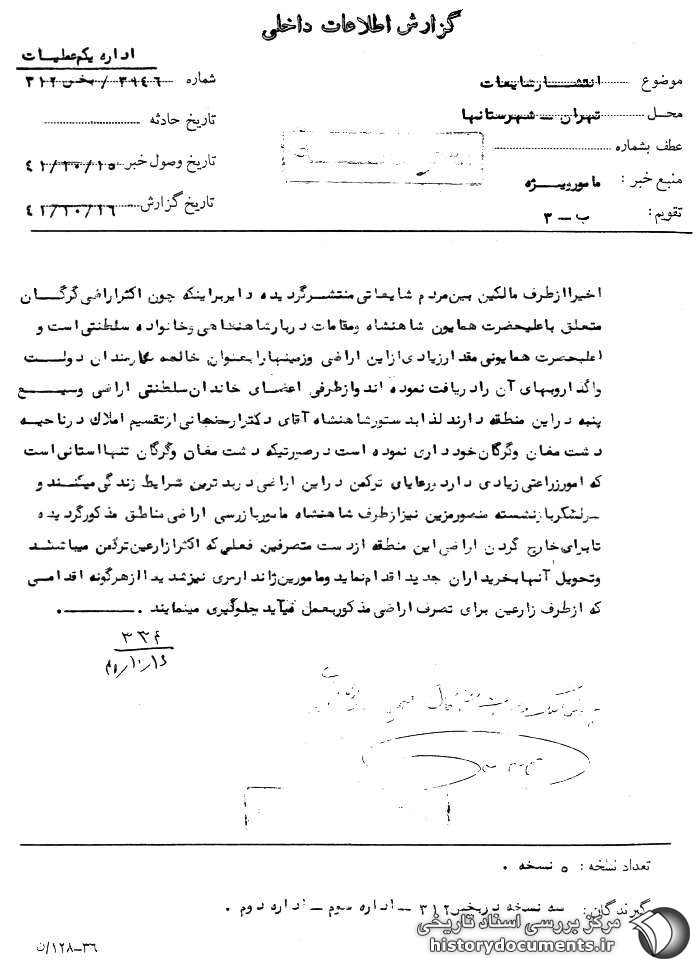 گزارش اطلاعات داخلی
اداره یکم عملیات
موضوع انتشار شایعات
شماره ۳۹۴۶ / بخش ۳۱۲
محل تهران - شهرستانها
تاریخ حادثه
عطف بشماره
تاریخ وصول خبر ۴۱/۱۰/۱۵
منبع خبر : مامور ویژه
تاریخ گزارش ۴۱/۱۰/۱۶
تقویم : ب - ۳
اخیرا از طرف مالکین بین مردم شایعاتی منتشر گردیده دایر براینکه چون اکثر اراضی گرگان
متعلق باعلیحضرت همایون شاهنشاه ومقامات دربار شاهنشاهی وخانواده سلطنتی است و
اعلیحضرت همایونی مقدار زیادی از این اراضی وزمینها را بعنوان خالصه بکارمندان دولت
واگذار وبهای آن را دریافت نموده اند واز طرفی اعضای خاندان سلطنتی اراضی وسیع
پنبه در این منطقه دارند لذا بدستور شاهنشاه آقای دکتر ارسنجانی از تقسیم املاک در ناحیه
دشت مغان وگرگان خودداری نموده است در صورتیکه دشت مغان وگرگان تنها استانی است
که امور زراعتی زیادی دارد ورعایای ترکمن در این اراضی در بدترین شرایط زندگی میکنند و
سرلشکر بازنشسته منصور مزین نیز از طرف شاهنشاه مامور بازرسی اراضی مناطق مذکور گردیده
تا برای خارج کردن اراضی این منطقه از دست متصرفین فعلی که اکثر زارعین ترکمن میباشند
وتحویل آنها بخریداران جدید اقدام نماید ومامورین ژاندارمری نیز شدیدا از هرگونه اقدامی
که از طرف زارعین برای تصرف اراضی مذکور بعمل میآید جلوگیری مینمایند .
تعداد نسخه : ۵ نسخه .
گیرندگان : سه نسخه در بخش ۳۱۲ - اداره سوم - اداره دوم .
۳۶-۱۲۸/ن
مرکز بررسی اسناد تاریخی
historydocuments.ir